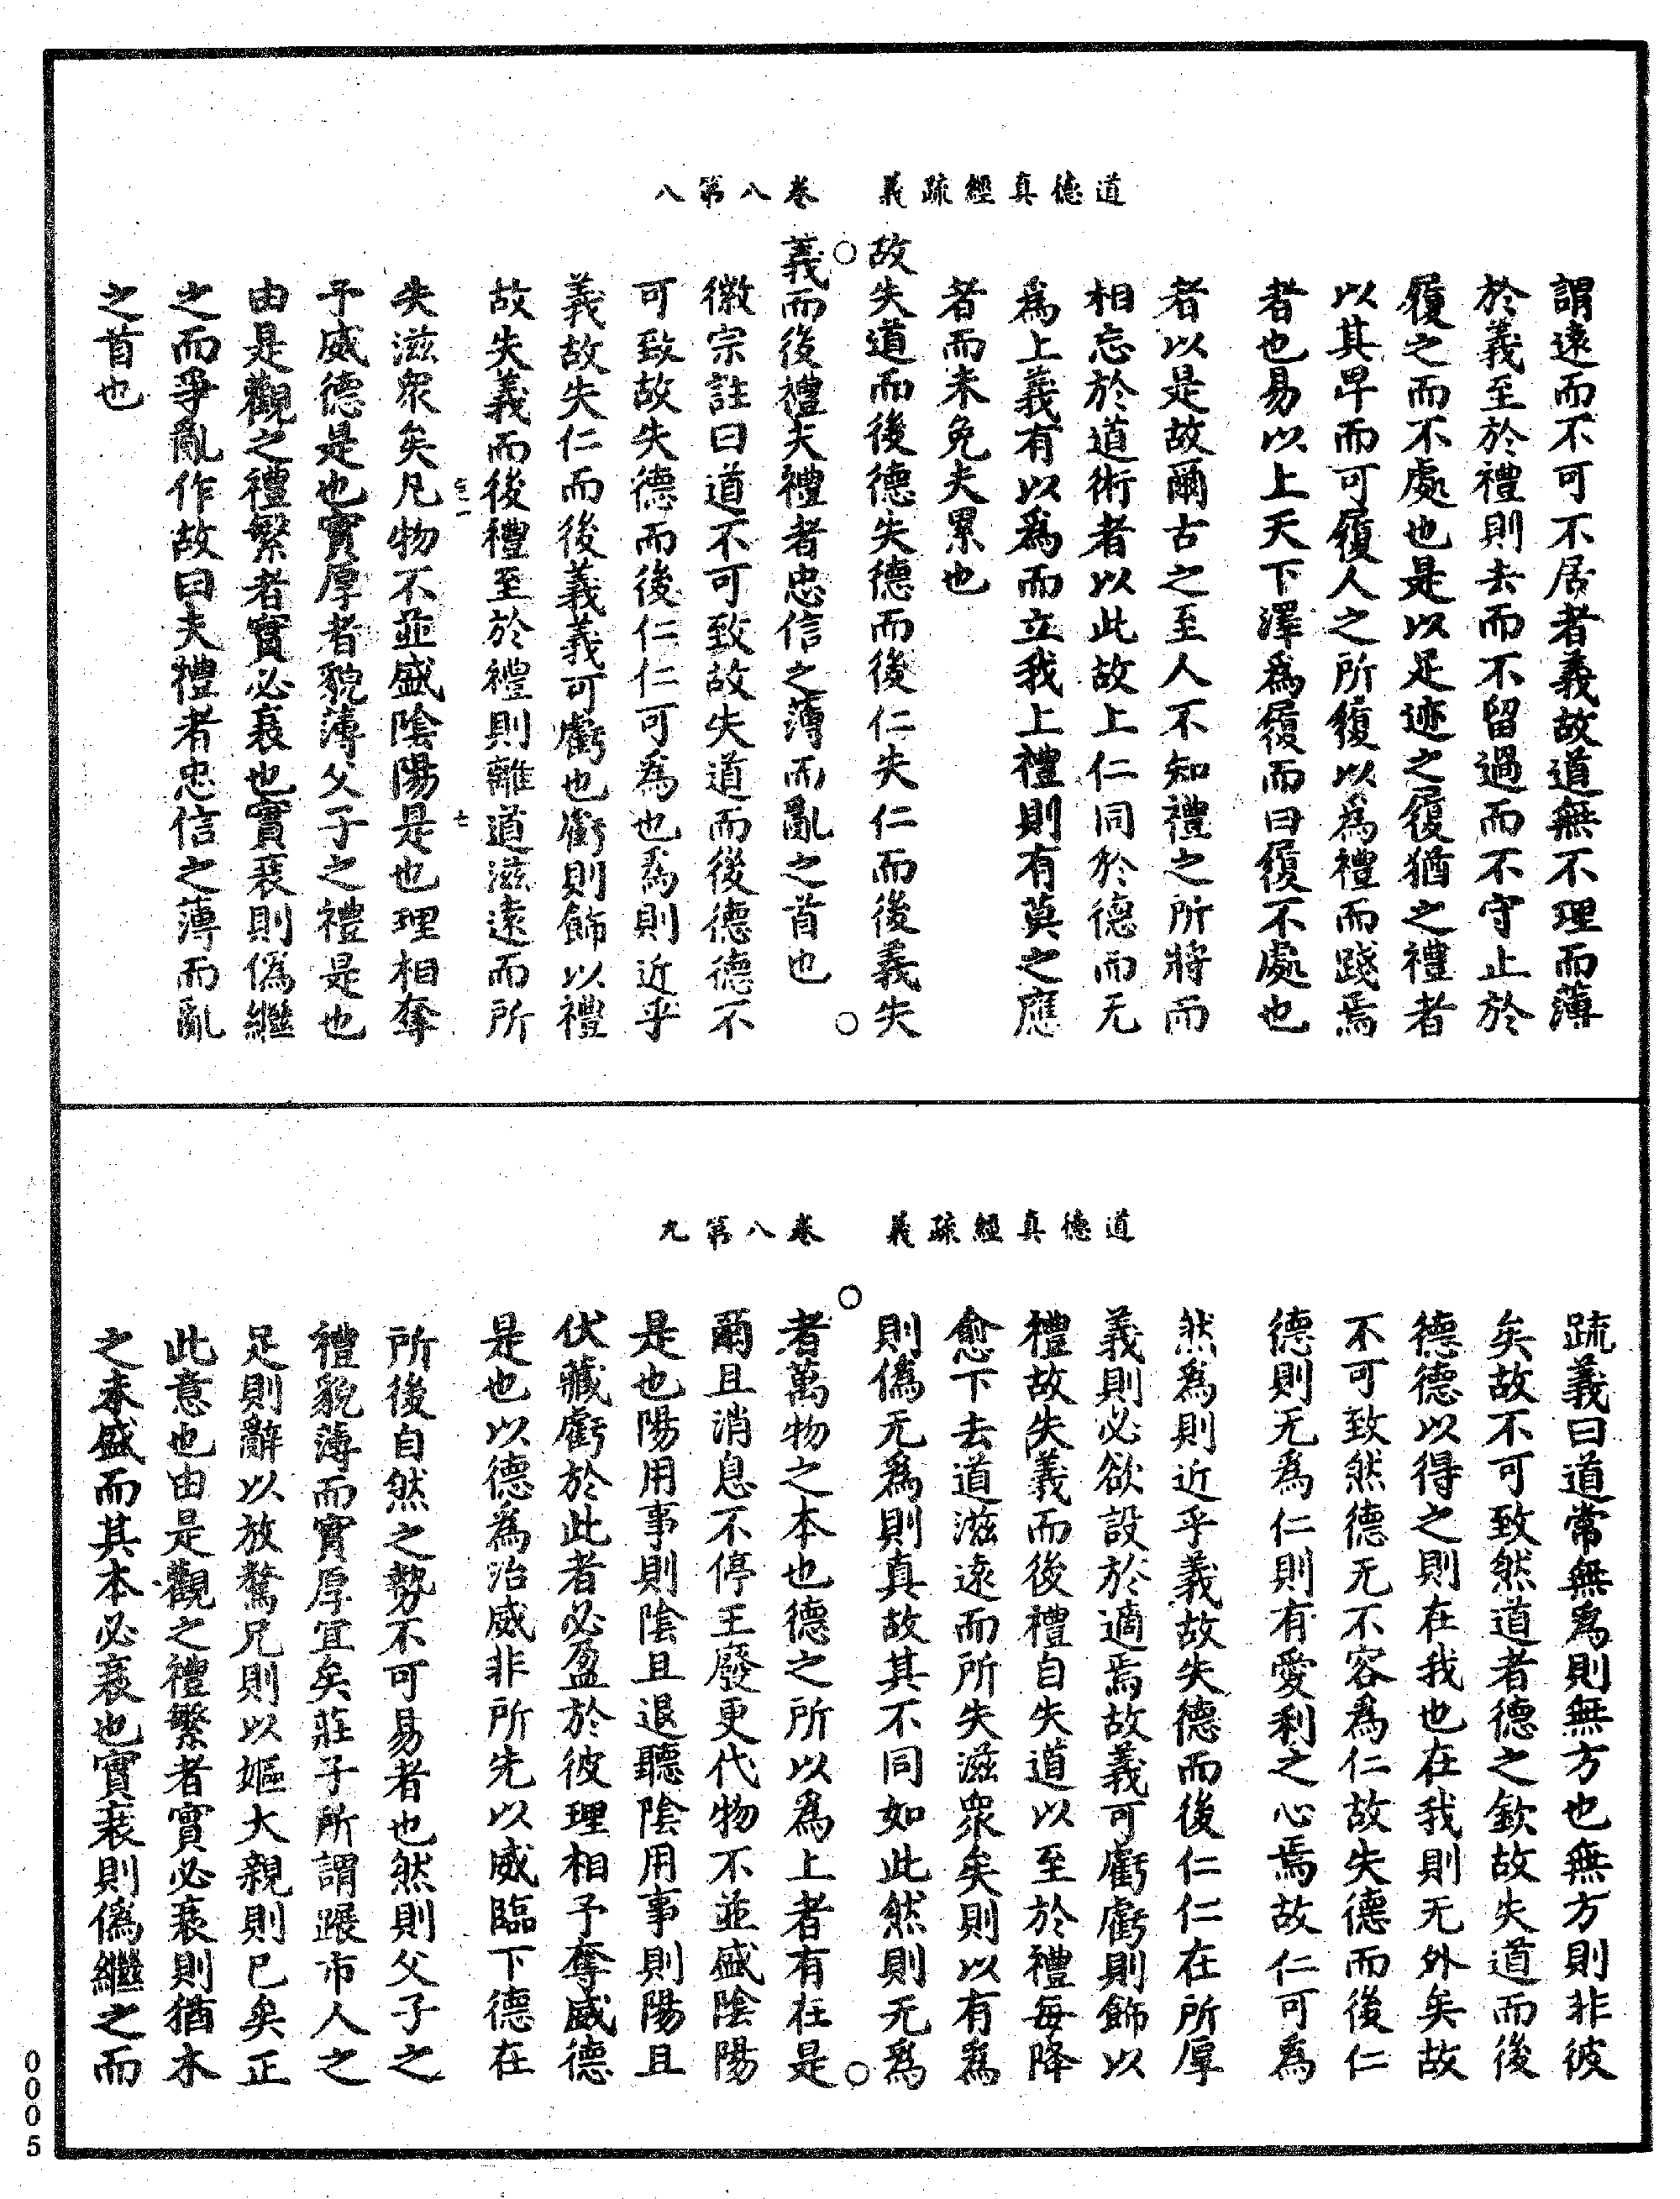 道德真經疏義　卷八第八
謂遠而不可不居者義故道無不理而薄
於義至於禮則去而不留過而不守止於
履之而不處也是以足迹之履猶之禮者
以其卑而可履人之所履以為禮而踐焉
者也易以上天下澤為履而曰履不處也
者以是故爾古之至人不知禮之所將而
相忘於道術者以此故上仁同於德而无
爲上義有以爲而立我上禮則有莫之應
者而未免夫累也
故失道而後德失德而後仁失仁而後義失
義而後禮夫禮者忠信之薄而亂之首也
徽宗註曰道不可致故失道而後德德不
可致故失德而後仁仁可為也爲則近乎
義故失仁而後義義可虧也虧則飾以禮
故失義而後禮至於禮則離道滋遠而所
失滋衆矣凡物不並盛陰陽是也理相奪
予威德是也實厚者貌薄父子之禮是也
由是觀之禮繁者實必衰也實衰則僞繼
之而爭亂作故曰夫禮者忠信之薄而亂
之首也
道德真經疏義　卷八第九
疏義曰道常無爲則無方也無方則非彼
矣故不可致然道者德之欽故失道而後
德德以得之則在我也在我則无外矣故
不可致然德无不容為仁故失德而後仁
德則无為仁則有愛利之心焉故仁可為
然爲則近乎義故失德而後仁仁在所厚
義則必欲設於適焉故義可虧虧則飾以
禮故失義而後禮自失道以至於禮每降
愈下去道滋遠而所失滋衆矣則以有爲
則僞无爲則真故其不同如此然則无爲
者萬物之本也德之所以為上者有在是
爾且消息不停王廢更代物不並盛陰陽
是也陽用事則陰且退聽陰用事則陽且
伏藏虧於此者必盈於彼理相予奪威德
是也以德為治威非所先以威臨下德在
所後自然之勢不可易者也然則父子之
禮貌薄而實厚宜矣莊子所謂蹍市人之
足則辭以放驁兄則以嫗大親則已矣正
此意也由是觀之禮繁者實必衰則猶木
之末盛而其本必衰也實衰則僞繼之而
0005